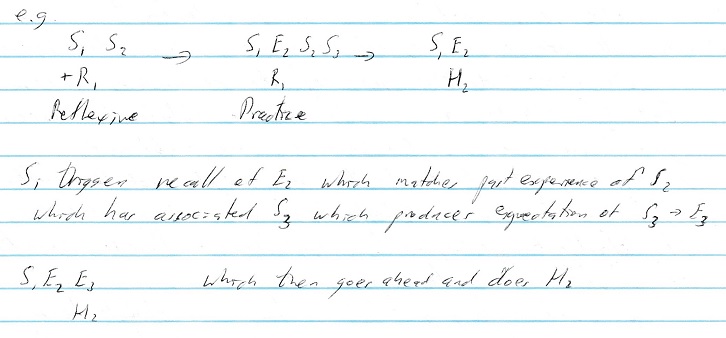 e.g.
S₁ S₂ → S₁ E₂ S₂ S₃ → S₁ E₂
+R₁ R₁ H₂
Reflexive Practice
S₁ triggers recall of E₂ which matches past experience of S₂
which has associated S₃ which produces expectation of S₃ → E₃
S₁ E₂ E₃ which then goes ahead and does H₂
H₂